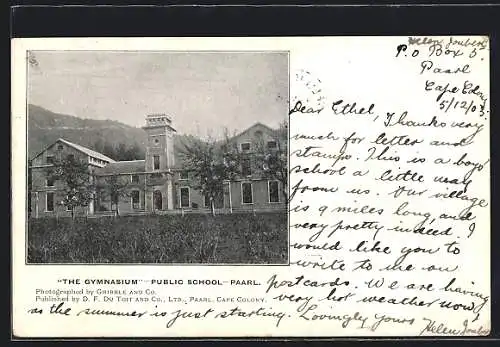 Helen Joubert
P.O Box 5.
Paarl
Cape Colony
5/12/03
Dear Ethel,
Thanks very
much for letter and
stamps. This is a boys
school a little way
from us. Our village
is 9 miles long, and
very pretty indeed. I
would like you to
write to me on
postcards. We are having
very hot weather now,
as the summer is just starting. Lovingly yours
Helen Joubert
"THE GYMNASIUM" PUBLIC SCHOOL—PAARL.
Photographed by GRIBBLE AND CO.
Published by D. F. DU TOIT AND CO., LTD., PAARL, CAPE COLONY.